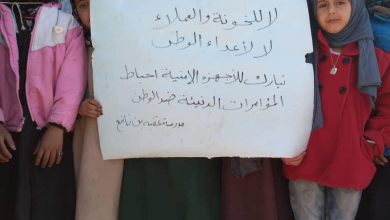 لا للخونة والعملاء
لا لأعداء الوطن
نبارك للأجهزة الامنية احباط
المؤامرات الدنيئة ضد الوطن
مدرسة عقبة بن نافع